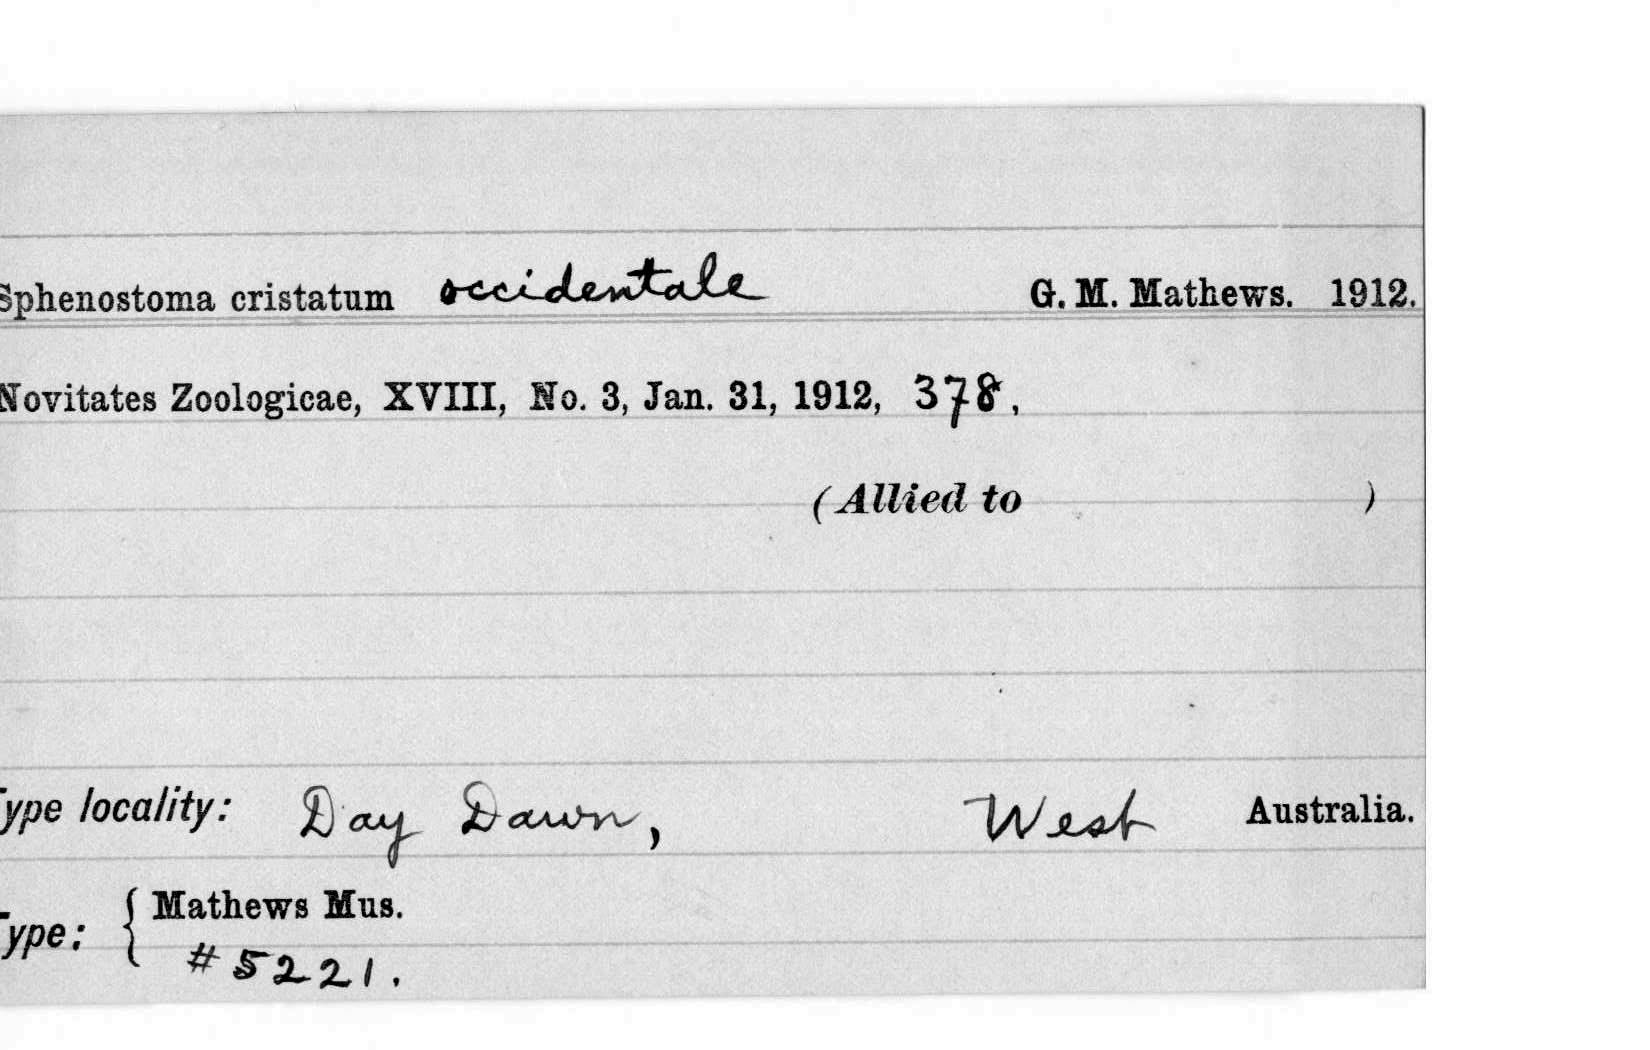 Sphenostoma cristatum occidentale G. M. Mathews. 1912.
Novitates Zoologicae, XVIII, No. 3, Jan. 31, 1912, 378.
(Allied to )
Type locality: Day Dawn, West Australia.
Type: { Mathews Mus.
# 5221.